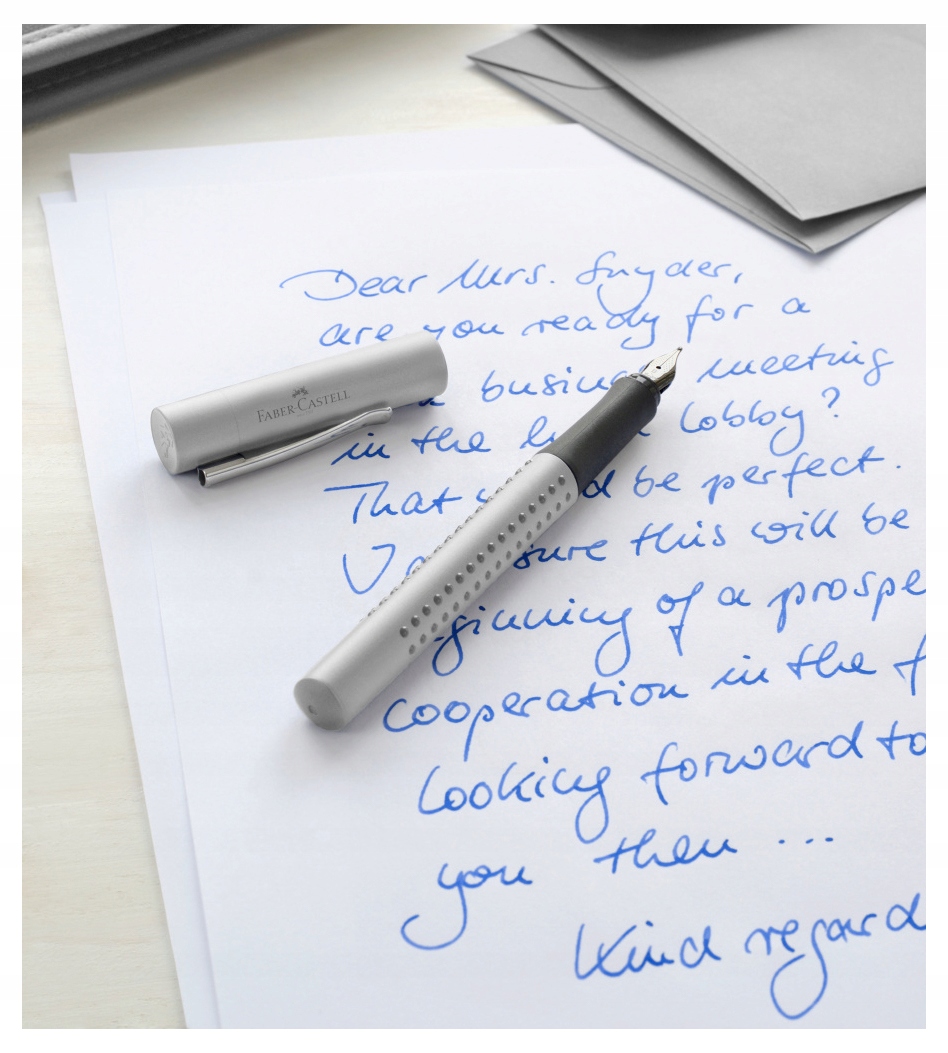 Dear Mrs. Snyder,
are you ready for a
business meeting
in the lobby?
That be perfect.
sure this will be
of a
cooperation in the
looking forward to
you then ...
Kind
FABER-CASTELL